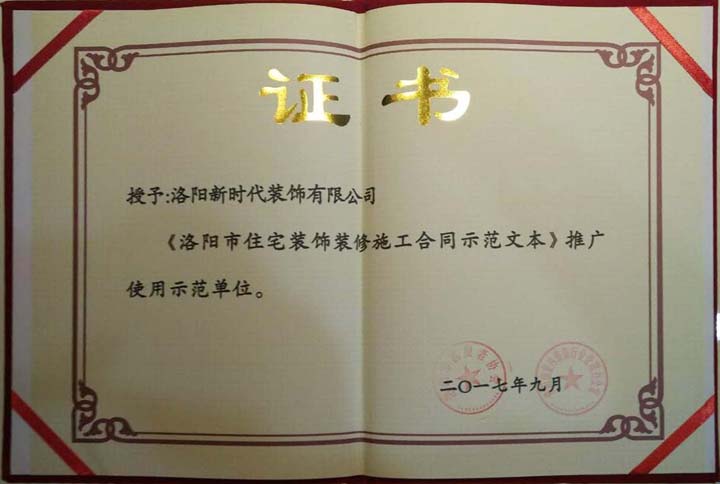 证书
授予:洛阳新时代装饰有限公司
《洛阳市住宅装饰装修施工合同示范文本》推广
使用示范单位。
二〇一七年九月